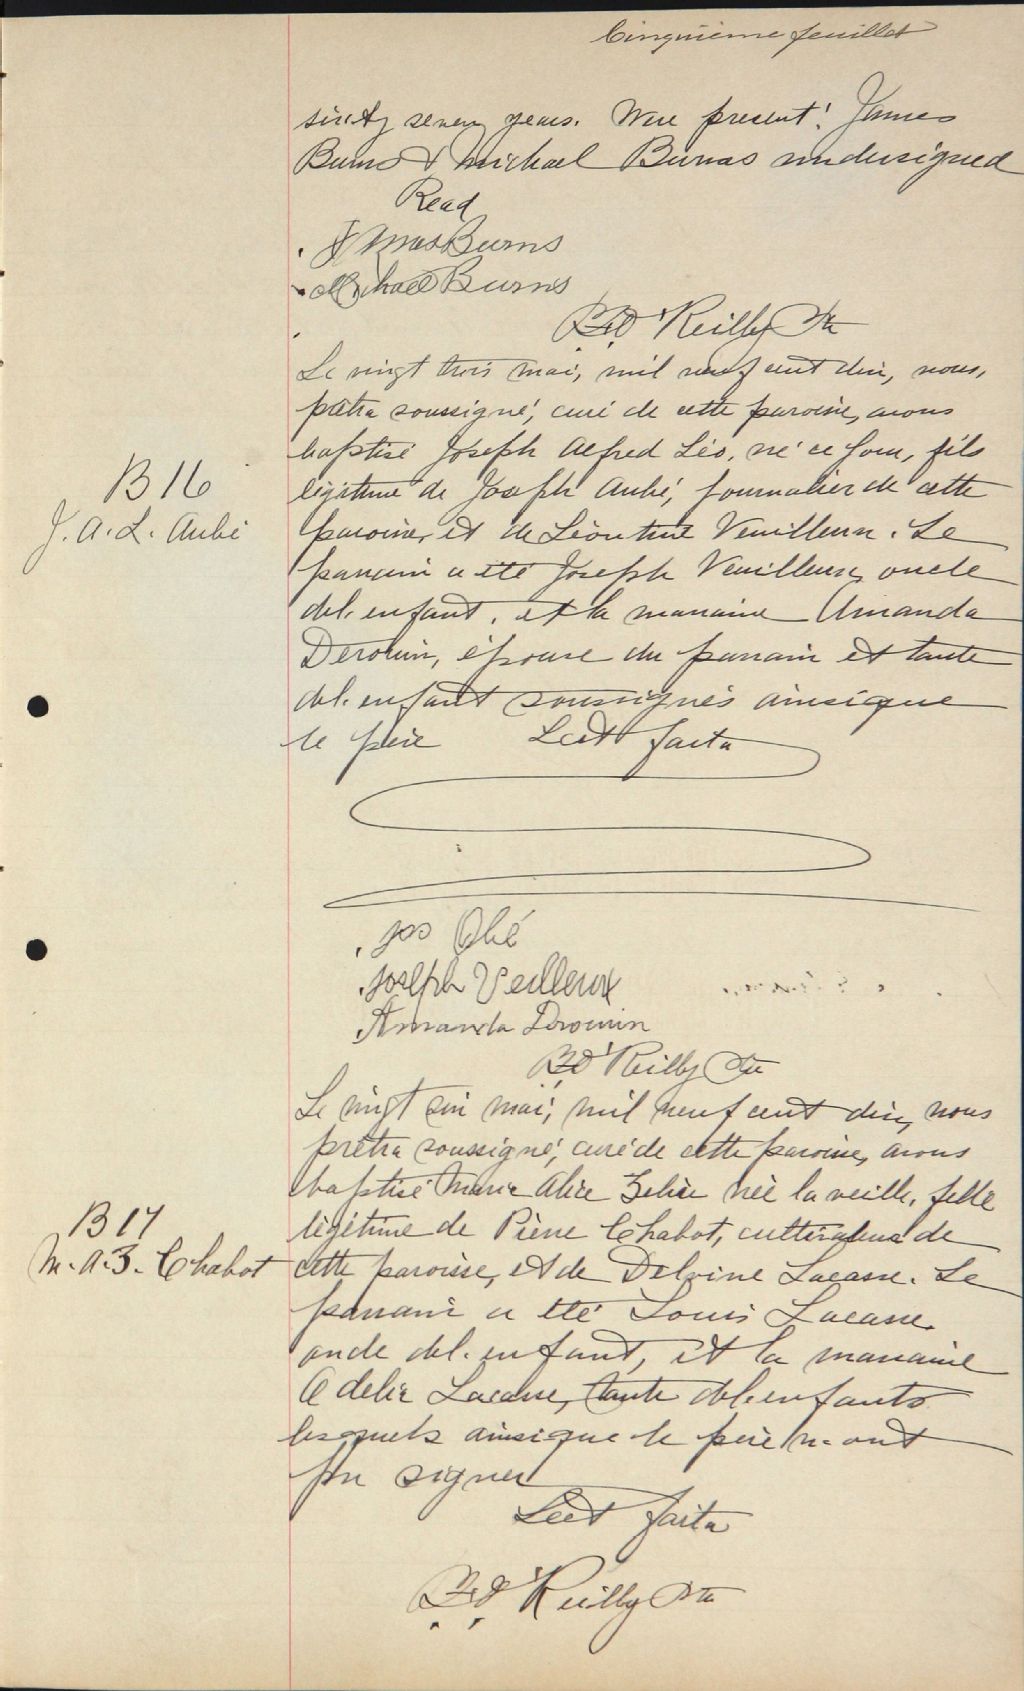 Cinquième feuillet
sixty seven years. Were present: James
Burns & Michael Burns undersigned
Read
James Burns
Michael Burns
P. O'Reilly Ptr
Le vingt trois mai, mil neuf cent dix, nous,
prêtre soussigné, curé de cette paroisse, avons
baptisé Joseph Alfred Léo, né ce jour, fils
B 16
légitime de Joseph Aubé, journalier de cette
J. A. L. Aubé
paroisse, et de Léontine Veuilleux. Le
parrain a été Joseph Veuilleux, oncle
de l'enfant, et la marraine Amanda
Derouin, épouse du parrain et tante
de l'enfant soussignés ainsi que
le père Lect. faite
Jos Obé
Joseph Veilleux
Amanda Drouin
O'Reilly Ptr
Le vingt six mai, mil neuf cent dix, nous
prêtre soussigné, curé de cette paroisse, avons
baptisé Marie Alice Zélire née la veille, fille
B 17
légitime de Pierre Chabot, cultivateur de
M. A. Z. Chabot
cette paroisse, et de Delvine Lacasse. Le
parrain a été Louis Lacasse,
oncle de l'enfant, et la marraine
Adelia Lacasse, tante de l'enfant
lesquels ainsi que le père n'ont
pu signer
Lect faite
O'Reilly Ptr